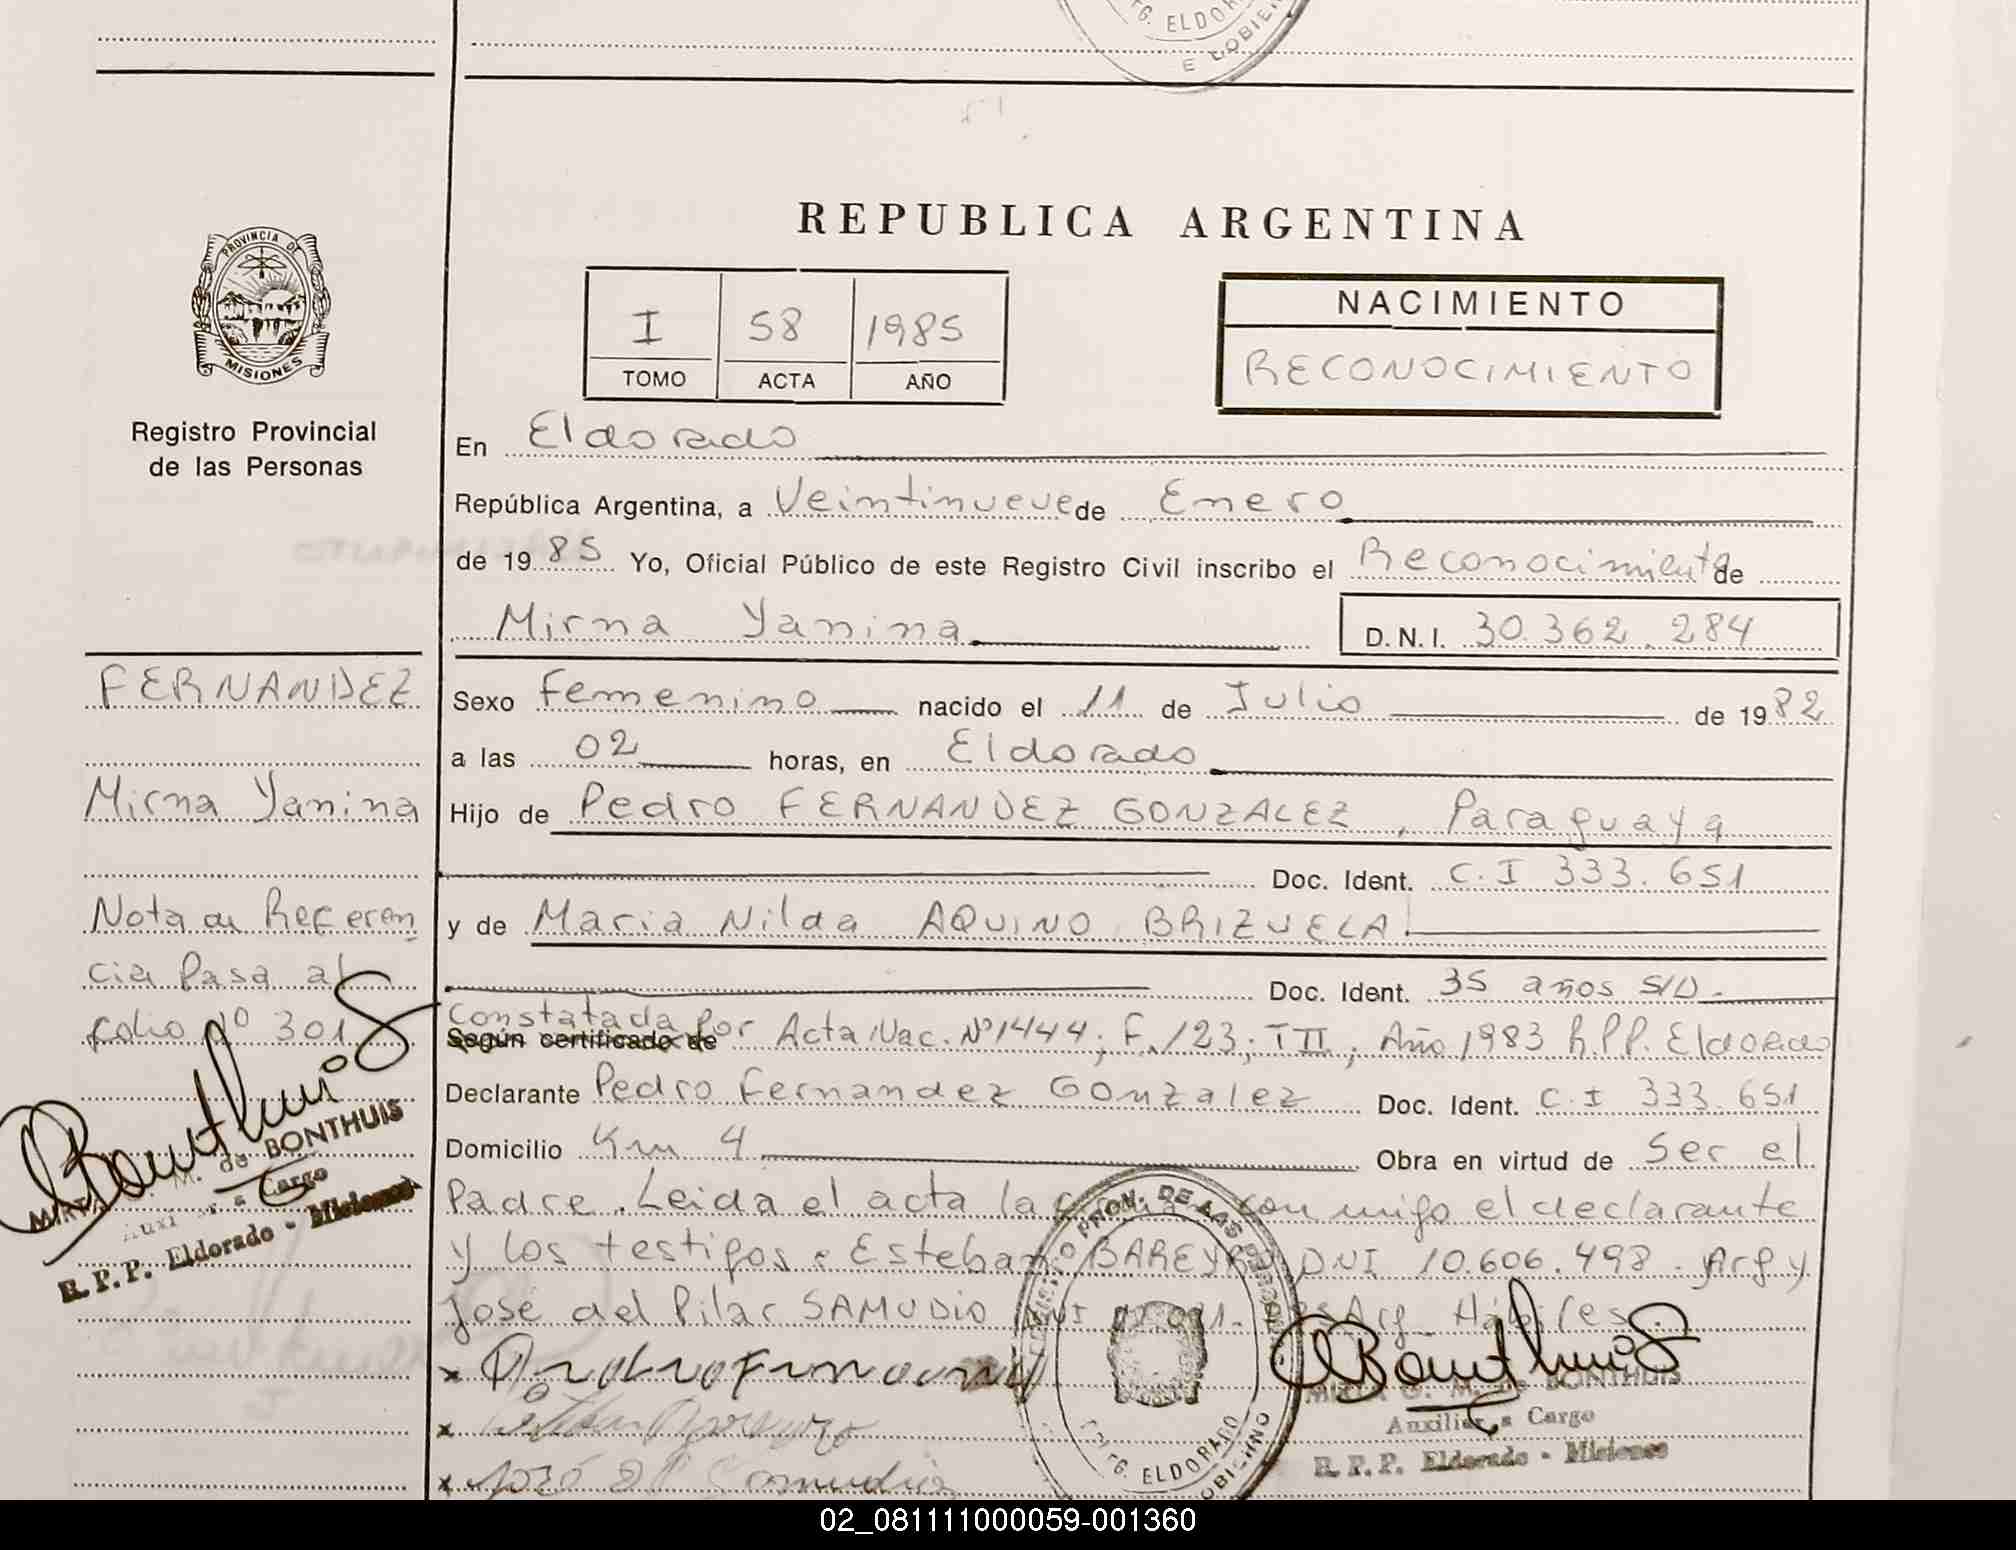 TG. ELDOR
E GOBIER
REPUBLICA ARGENTINA
PROVINCIA DE
MISIONES
I 58 1985
TOMO ACTA AÑO
NACIMIENTO
RECONOCIMIENTO
Registro Provincial
de las Personas
En Eldorado
República Argentina, a Veintinueve de Enero
de 1985 Yo, Oficial Público de este Registro Civil inscribo el Reconocimiento de
Mirna Yanina D.N.I. 30.362.284
FERNANDEZ
Mirna Yanina
Nota de Referen
cia Pasa al
folio Nº 301
Sexo Femenino nacido el 11 de Julio de 1982
a las 02 horas, en Eldorado
Hijo de Pedro FERNANDEZ GONZALEZ, Paraguaya
Doc. Ident. C.I 333.651
y de Maria Nilda AQUINO BRIZUELA
Doc. Ident. 35 años S/D.
Constatada por Acta Nac. Nº 1444; F. 123; T II; Año 1983 R.P.P. Eldorado
Según certificado de
Declarante Pedro Fernandez Gonzalez Doc. Ident. C.I 333.651
Domicilio Km 4 Obra en virtud de Ser el
Padre. Leida el acta la conmigo el declarante
y los testigos: Esteban BAREYRO DNI 10.606.498. Arg y
José del Pilar SAMUDIO DNI Arg. Hábiles.
MIRTA M. de BONTHUIS
Auxiliar a Cargo
R.P.P. Eldorado - Misiones
x
x
x José D P Samudio
PROV. DE LAS
TG. ELDORADO
GOBIERNO
MIRTA G. M. de BONTHUIS
Auxiliar a Cargo
R.P.P. Eldorado - Misiones
02_081111000059-001360